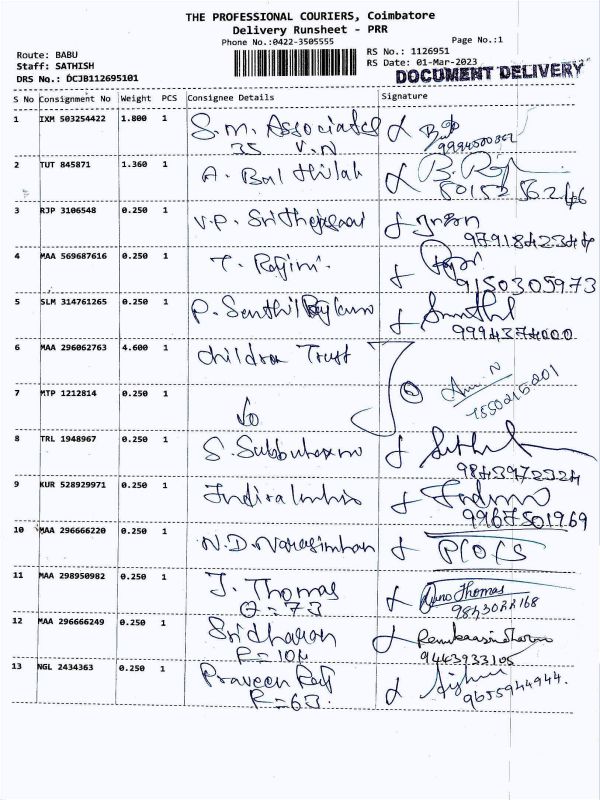 THE PROFESSIONAL COURIERS, Coimbatore
Delivery Runsheet - PRR
Phone No.:0422-3505555 Page No.:1
Route: BABU RS No.: 1126951
Staff: SATHISH RS Date: 01-Mar-2023
DRS No.: DCJB112695101 DOCUMENT DELIVERY
S No Consignment No Weight PCS Consignee Details Signature
1 IXM 503254422 1.800 1 S.M. Associates
35 V.N
2 TUT 845871 1.360 1 A. Bal thilak
3 RJP 3106548 0.250 1 V.P.
9791842344
4 MAA 569687616 0.250 1 T. Ragini.
9150305973
5 SLM 314761265 0.250 1 P. Senthil
9994374000
6 MAA 296062763 4.600 1 Children Trust
7 MTP 1212814 0.250 1
8 TRL 1948967 0.250 1 S.
9 KUR 528929971 0.250 1
9967501969
10 MAA 296666220 0.250 1 N.D. Narasimhan
11 MAA 298950982 0.250 1 J. Thomas Thomas
= 73 9843022168
12 MAA 296666249 0.250 1 Sridharan
R = 104 9443933105
13 NGL 2434363 0.250 1 Praveen Raj
R = 63 9655944944.